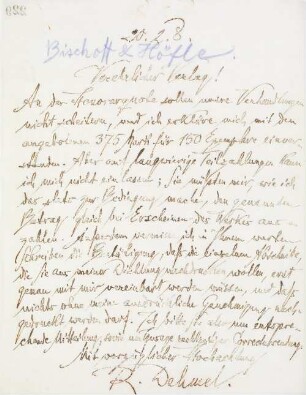 20.2.8.
Bischoff & Höfle.
Verehrlicher Verlag!
An der Honorarquote sollen unsere Verhandlungen
nicht scheitern, und ich erkläre mich mit den
angebotenen 375 Mark für 150 Exemplare einver-
standen. Aber auf langwierige Teilzahlungen kann
ich mich nicht einlassen; Sie müßten mir, wie ich
das stets zur Bedingung mache, den genannten
Betrag gleich bei Erscheinen des Werkes aus-
zahlen. Außerdem vermisse ich in Ihrem werten
Schreiben die Bestätigung, daß die einzelnen Abschnitte,
die Sie aus meiner Dichtung nachdrucken wollen, erst
genau mit mir vereinbart werden müssen, und daß
nichts ohne meine ausdrückliche Genehmigung nach-
gedruckt werden darf. Ich bitte Sie also um entspre-
chende Mitteilung, sowie um
Mit vorzüglicher Hochachtung
R. Dehmel.